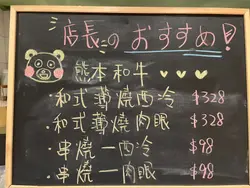 店長のおすすめ!
熊本和牛
・和式薄燒西冷 $328
・和式薄燒肉眼 $328
・串燒一西冷 $98
・串燒一肉眼 $98